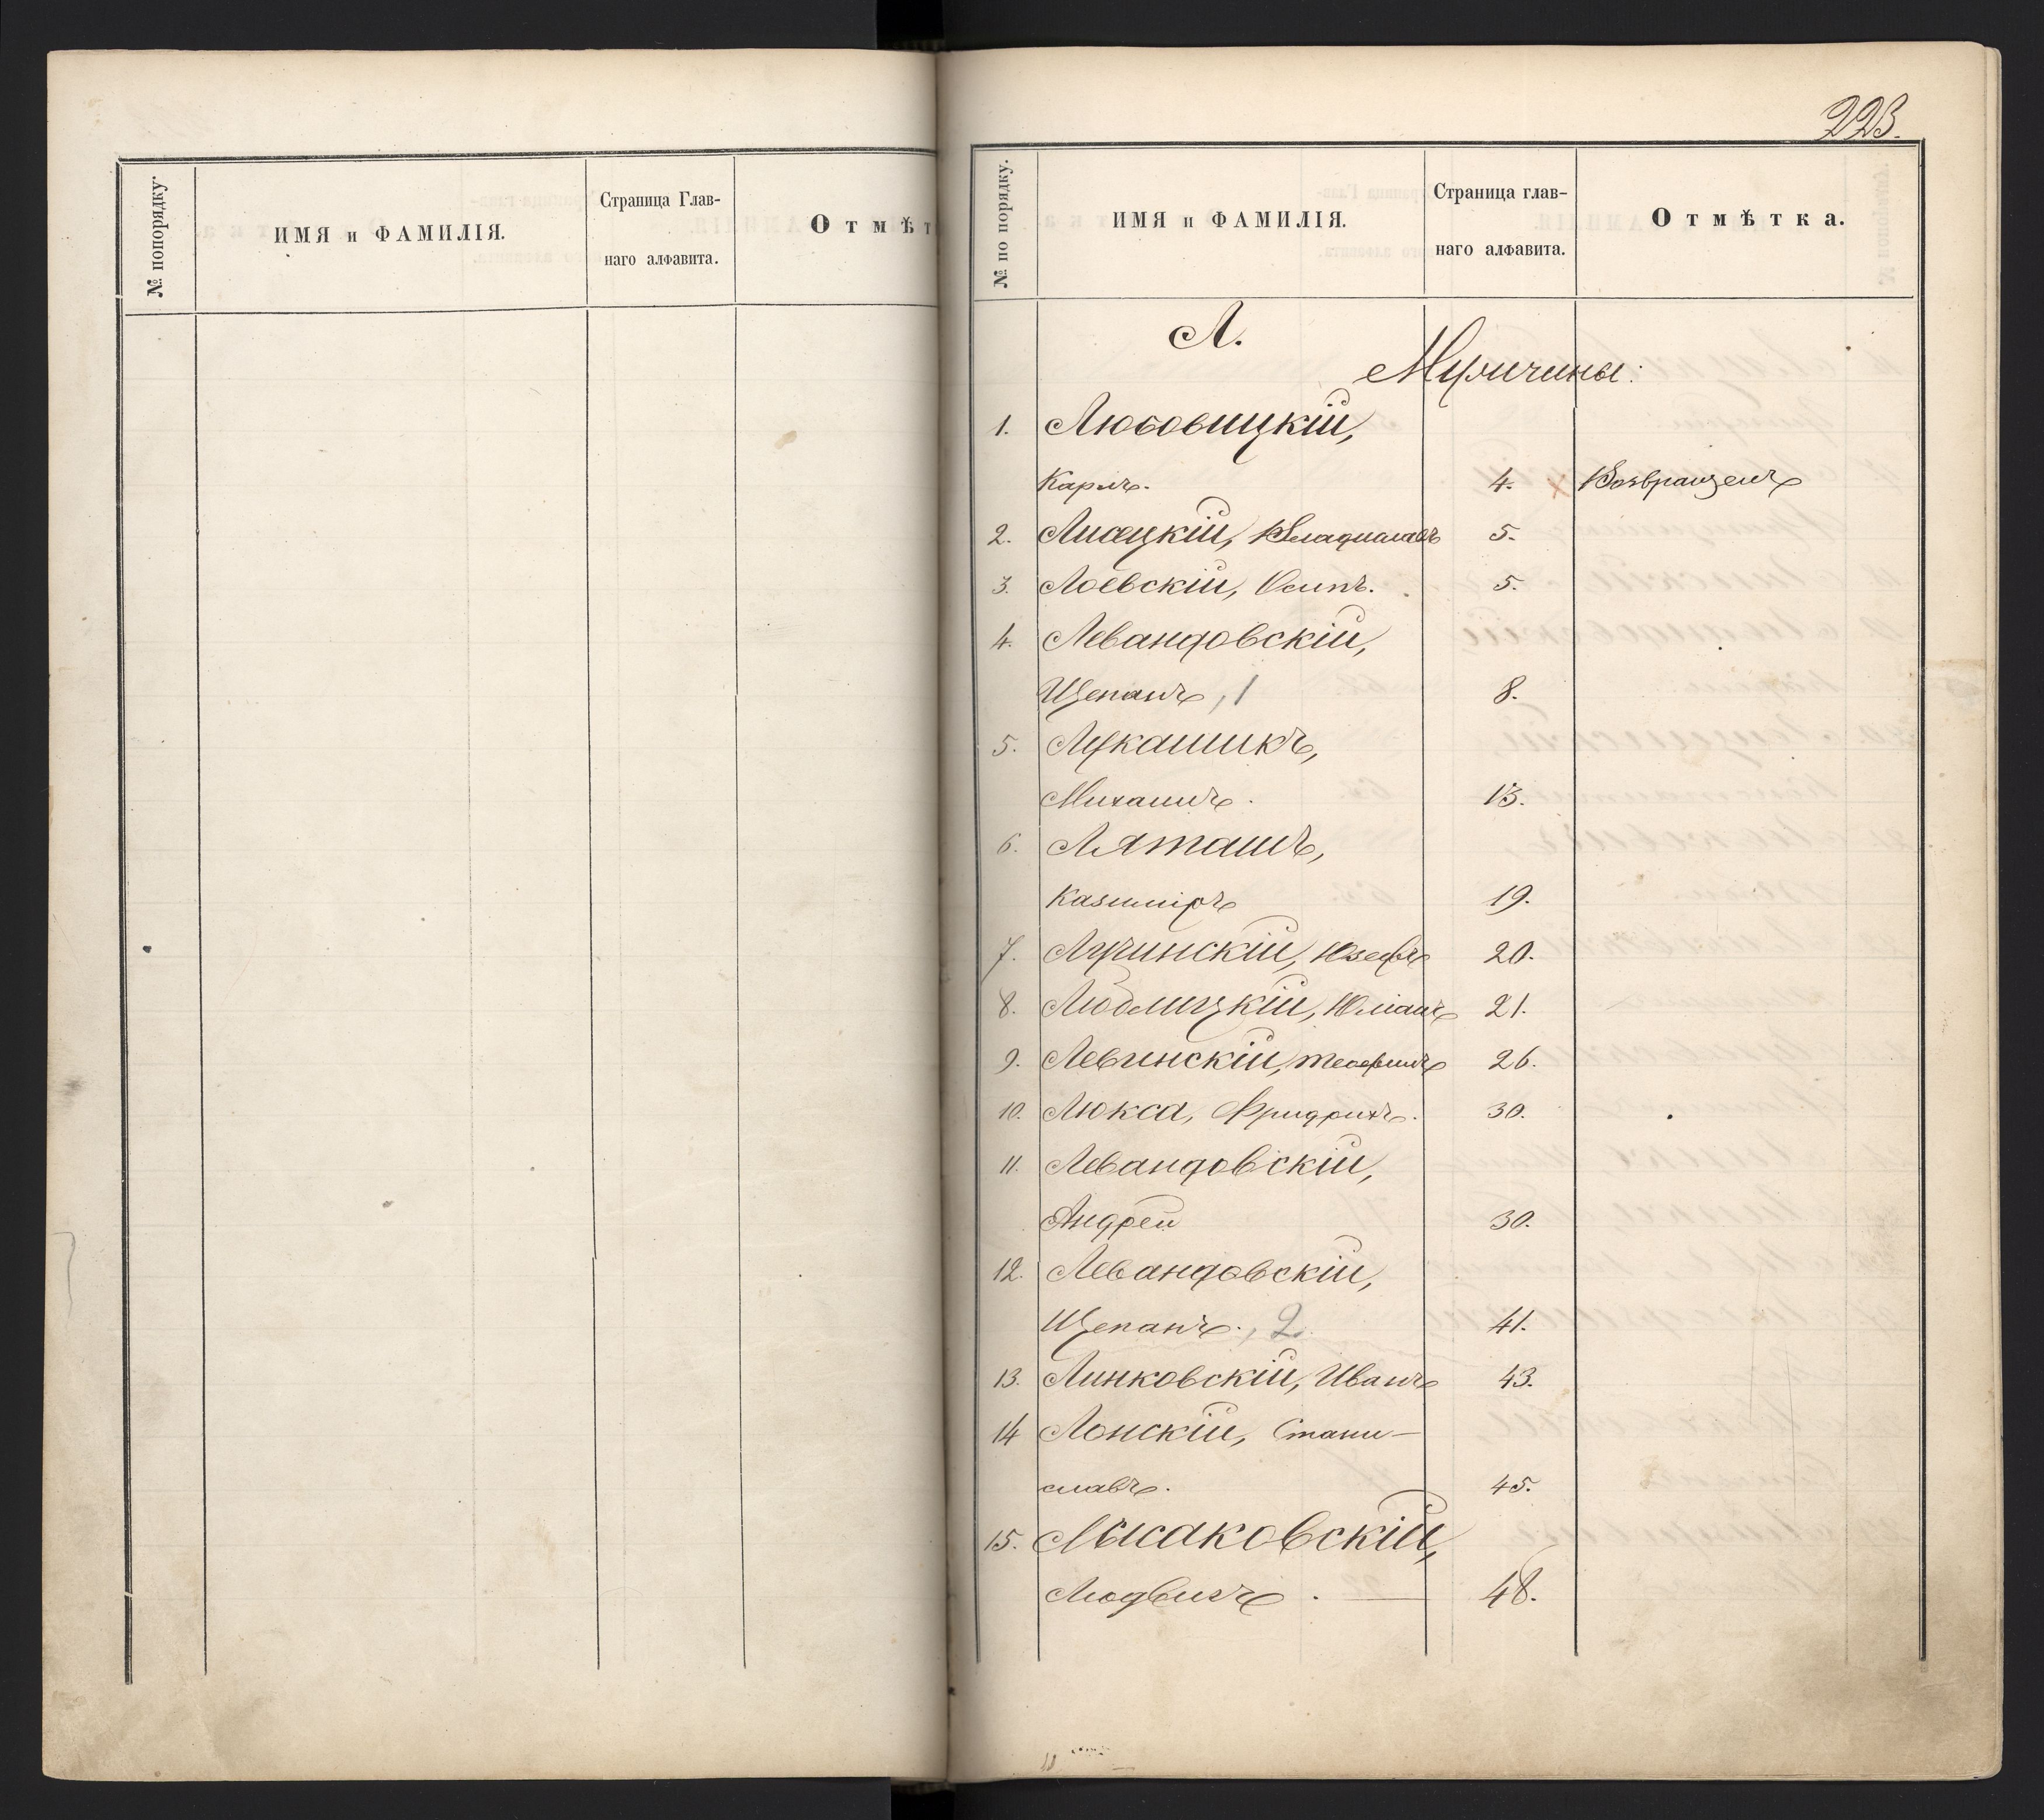 № попорядку.
ИМЯ и ФАМИЛІЯ.
Страница Глав-
наго алфавита.
Отмѣт
223.
№ по порядку.
ИМЯ и ФАМИЛІЯ.
Страница глав-
наго алфавита.
Отмѣтка.
Л.
Мужчины:
1. Любовицкій,
Карлъ. 4. Возвращенъ
2. Лисецкій, Владиславъ 5.
3. Лоевскій, Осипъ. 5.
4. Левандовскій,
Щепанъ, 1 8.
5. Лукашикъ,
Михаилъ. 13.
6. Ляташъ,
Казиміръ 19.
7. Лучинскій, Юзефъ 20.
8. Люблицкій, Юліанъ 21.
9. Левинскій, Теофилъ 26.
10. Люкса, Фридрихъ. 30.
11. Левандовскій,
Андрей 30.
12. Левандовскій,
Щепанъ., 2. 41.
13. Линковскій, Иванъ 43.
14 Лонскій, Стани-
славъ. 45.
15. Лысаковскій,
Людвигъ. — 48.